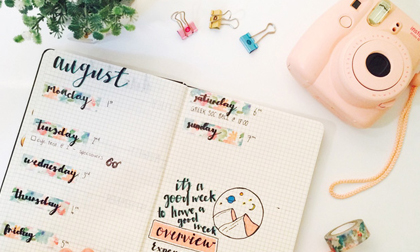 august
monday
tuesday
wednesday
thursday
friday
saturday
sunday
it's a
good week
to have a
good week
overview